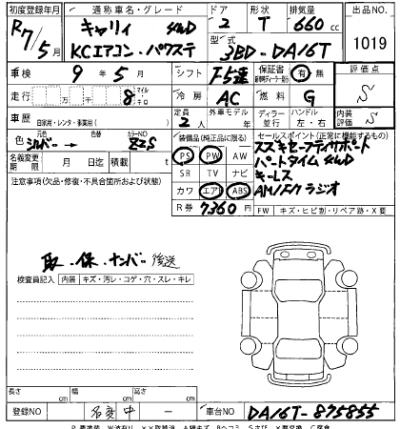 初度登録年月 通称車名・グレード ドア 形状 排気量 出品NO.
R7/5月 キャリィ 4WD 2 T 660cc 1019
KCエアコン・パワステ 型式 3BD-DA16T
車検 9年5月 シフト F5速 保証書 有 無 評価点 S
走行 8 マイル キロ 冷房 AC 燃料 G
車歴 自家用・レンタ・事業用 定員 2人 外車モデル 年 ディーラー 並行 ハンドル 左・右 内装評価 S
色 元色 シルバー→ 色替 カラーNO Z2S
装備品(純正品に限る) セールスポイント(正常に機能するもの)
名義変更期限 月 日迄 積載 t
PS PW AW スズキセーフティサポート
SR TV ナビ パートタイム4WD
カワ エア ABS キーレス
AM/FMラジオ
R券 7360円
FW キズ・ヒビ割・リペア跡・X要
注意事項(欠品・修復・不具合箇所および状態)
取・保・ナンバー 後送
検査員記入 内装 キズ・汚レ・コゲ・穴・スレ・キレ
長さ cm 幅 cm 高さ cm
登録NO 名変中 - 車台NO DA16T-875855